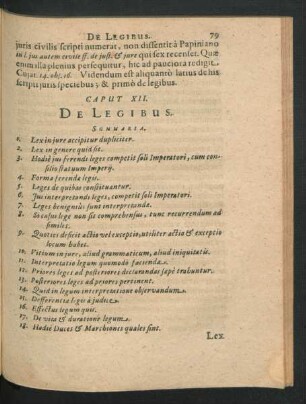 DE LEGIBUS. 79
juris civilis scripti numerat, non dissentit à Papiniano
in l. jus autem civile ff. de just. & jure qui sex recenset. Quæ
enim illa plenius persequitur, hic ad pauciora redigit.
Cujac. 14. obs. 16. Videndum est aliquantò latius de his
scripti juris speciebus; & primò de legibus.
CAPUT XII.
DE LEGIBUS.
SUMMARIA.
1. Lex in jure accipitur dupliciter.
2. Lex in genere quid sit.
3. Hodiè jus ferendi leges competit soli Imperatori, cum con-
silio statuum Imperij.
4. Forma ferendæ legis.
5. Leges de quibus constituantur.
6. Jus interpretandi leges, competit soli Imperatori.
7. Leges benignius sunt interpretandæ.
8. Si casus lege non sit comprehensus, tunc recurrendum ad
similes.
9. Quoties deficit actio vel exceptio, utiliter actio & exceptio
locum habet.
10. Vitium in jure, aliud grammaticum, aliud iniquitatis.
11. Interpretatio legum quomodo facienda.
12. Priores leges ad posteriores declarandas sæpè trahuntur.
13. Posteriores leges ad priores pertinent.
14. Quid in legum interpretatione observandum.
15. Differentia legis à judice.
16. Effectus legum quis.
17. De vita & duratione legum.
18. Hodiè Duces & Marchiones quales sint.
Lex